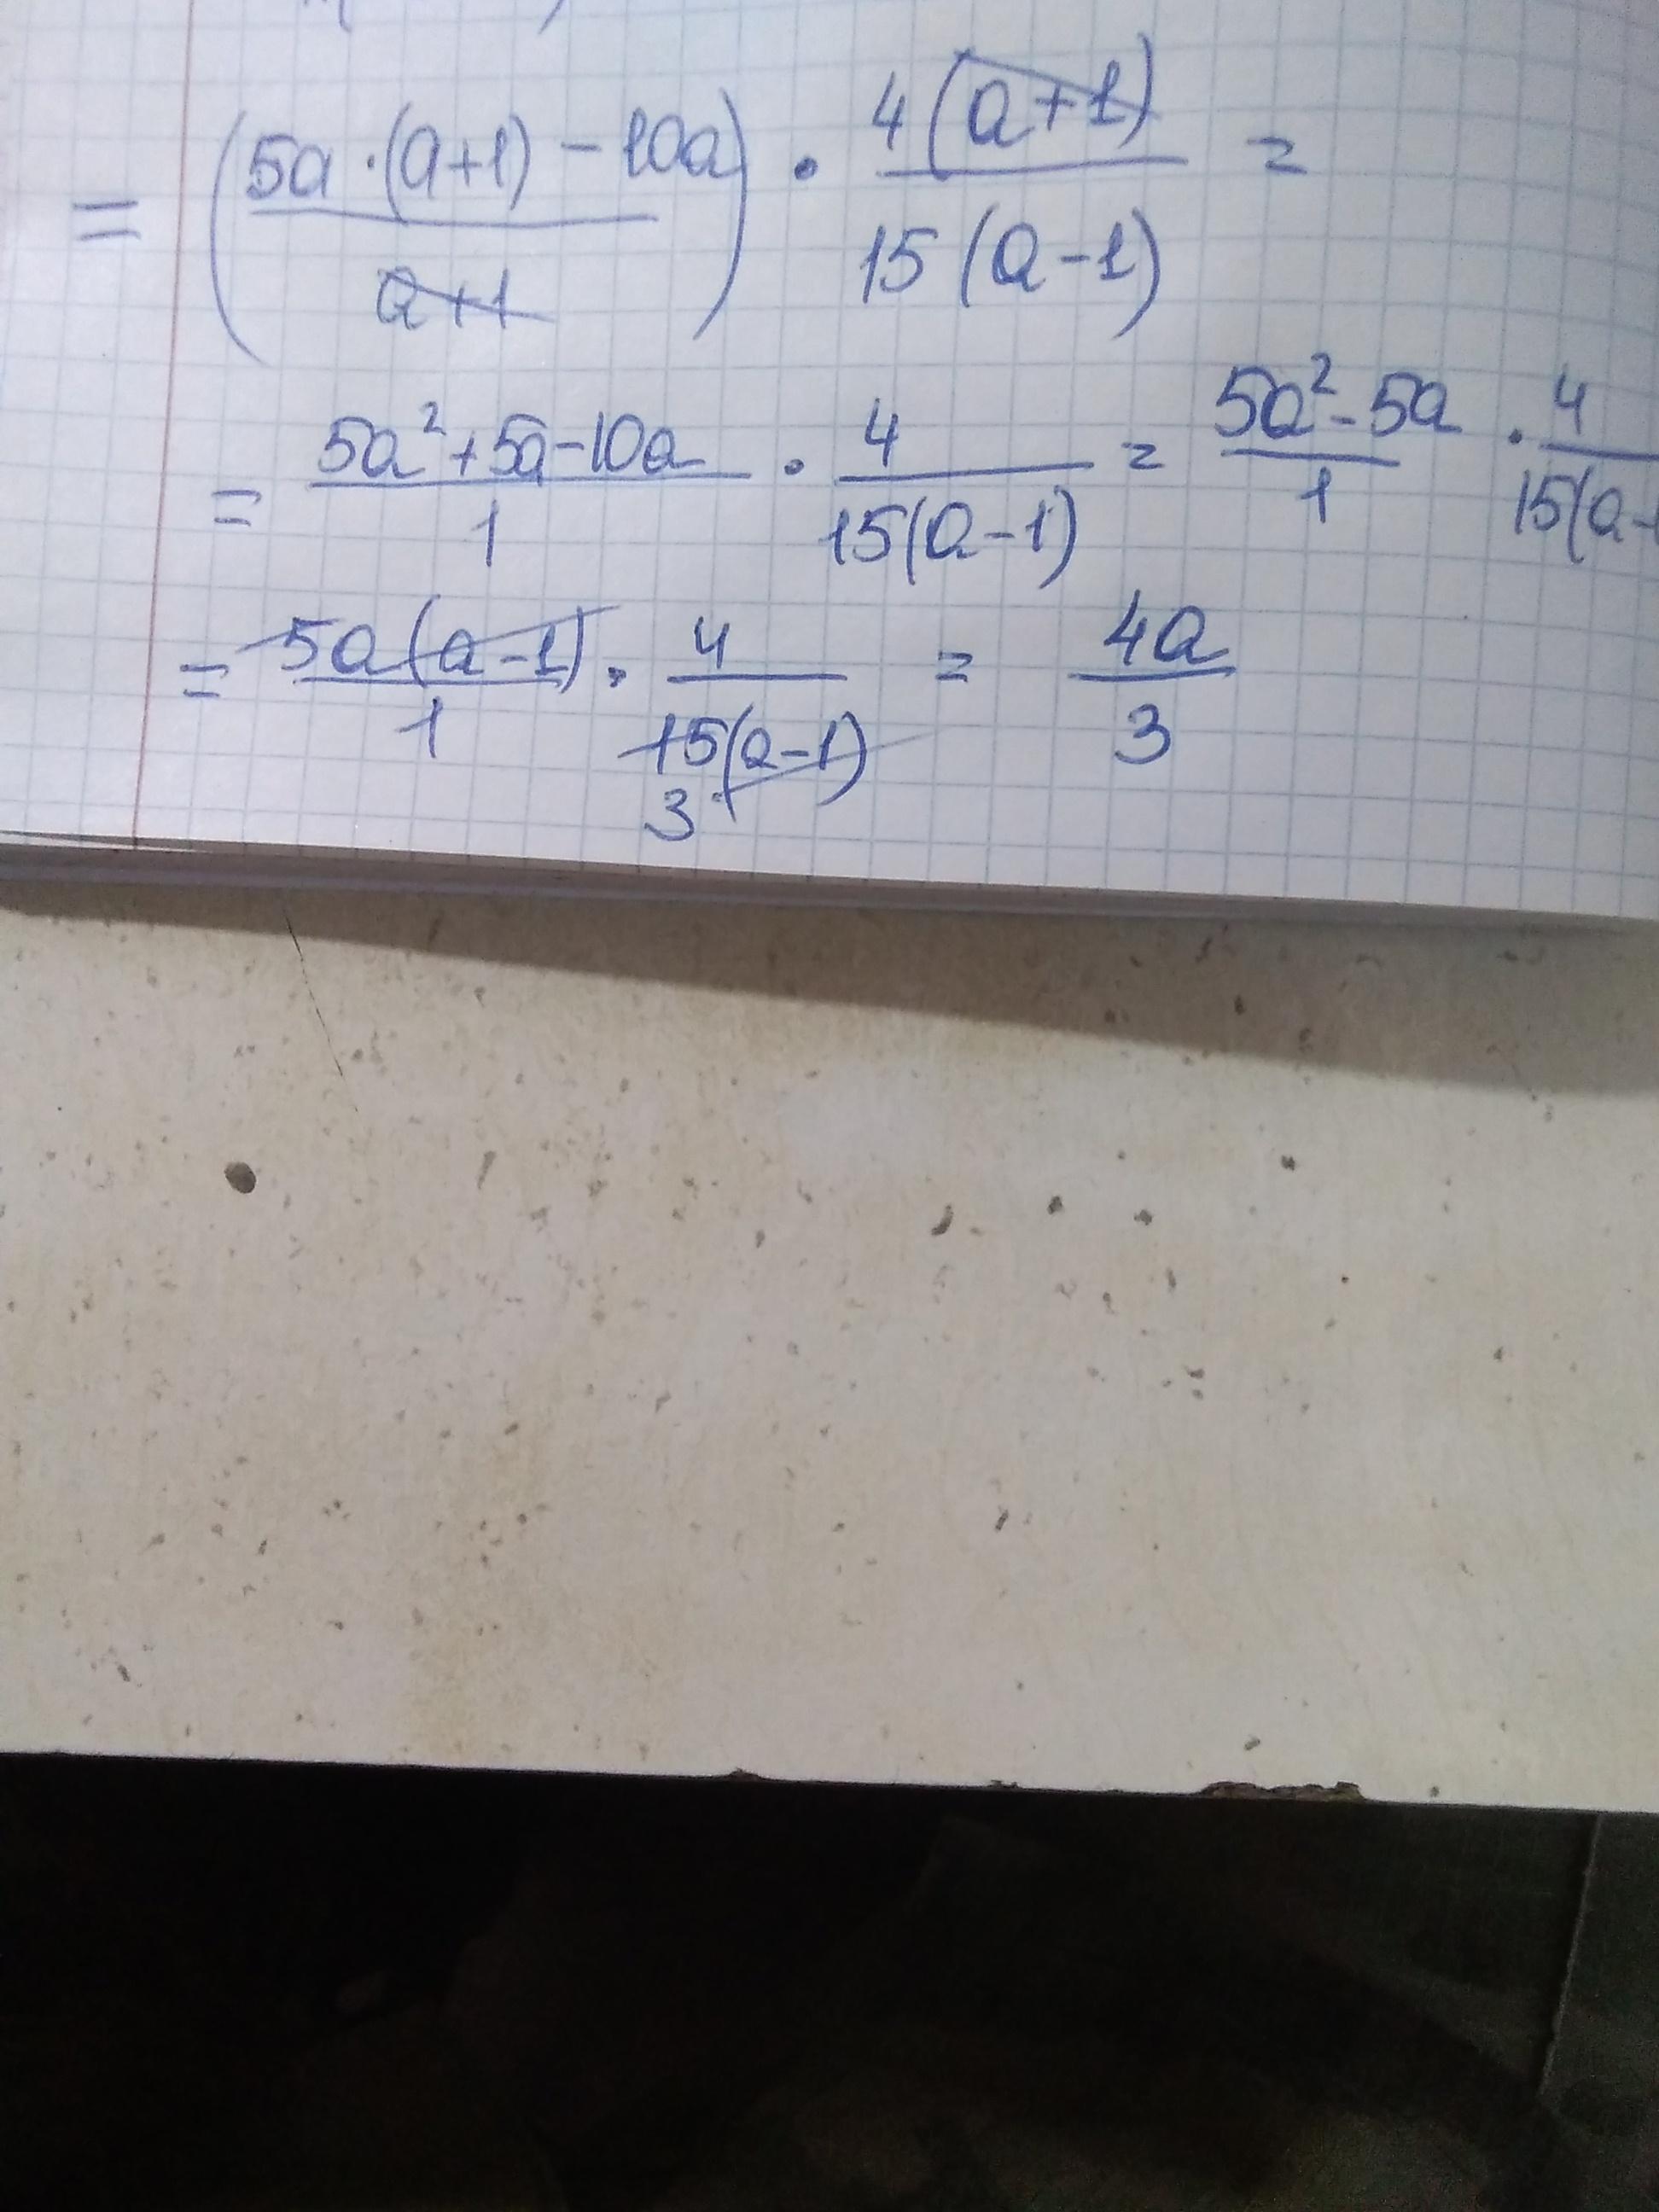 = (5a·(a+1) - 10a / a+1) · 4(a+1) / 15(a-1) =
= 5a²+5a-10a / 1 · 4 / 15(a-1) = 5a²-5a / 1 · 4 / 15(a-
= 5a(a-1) / 1 · 4 / 15(a-1) = 4a / 3
3